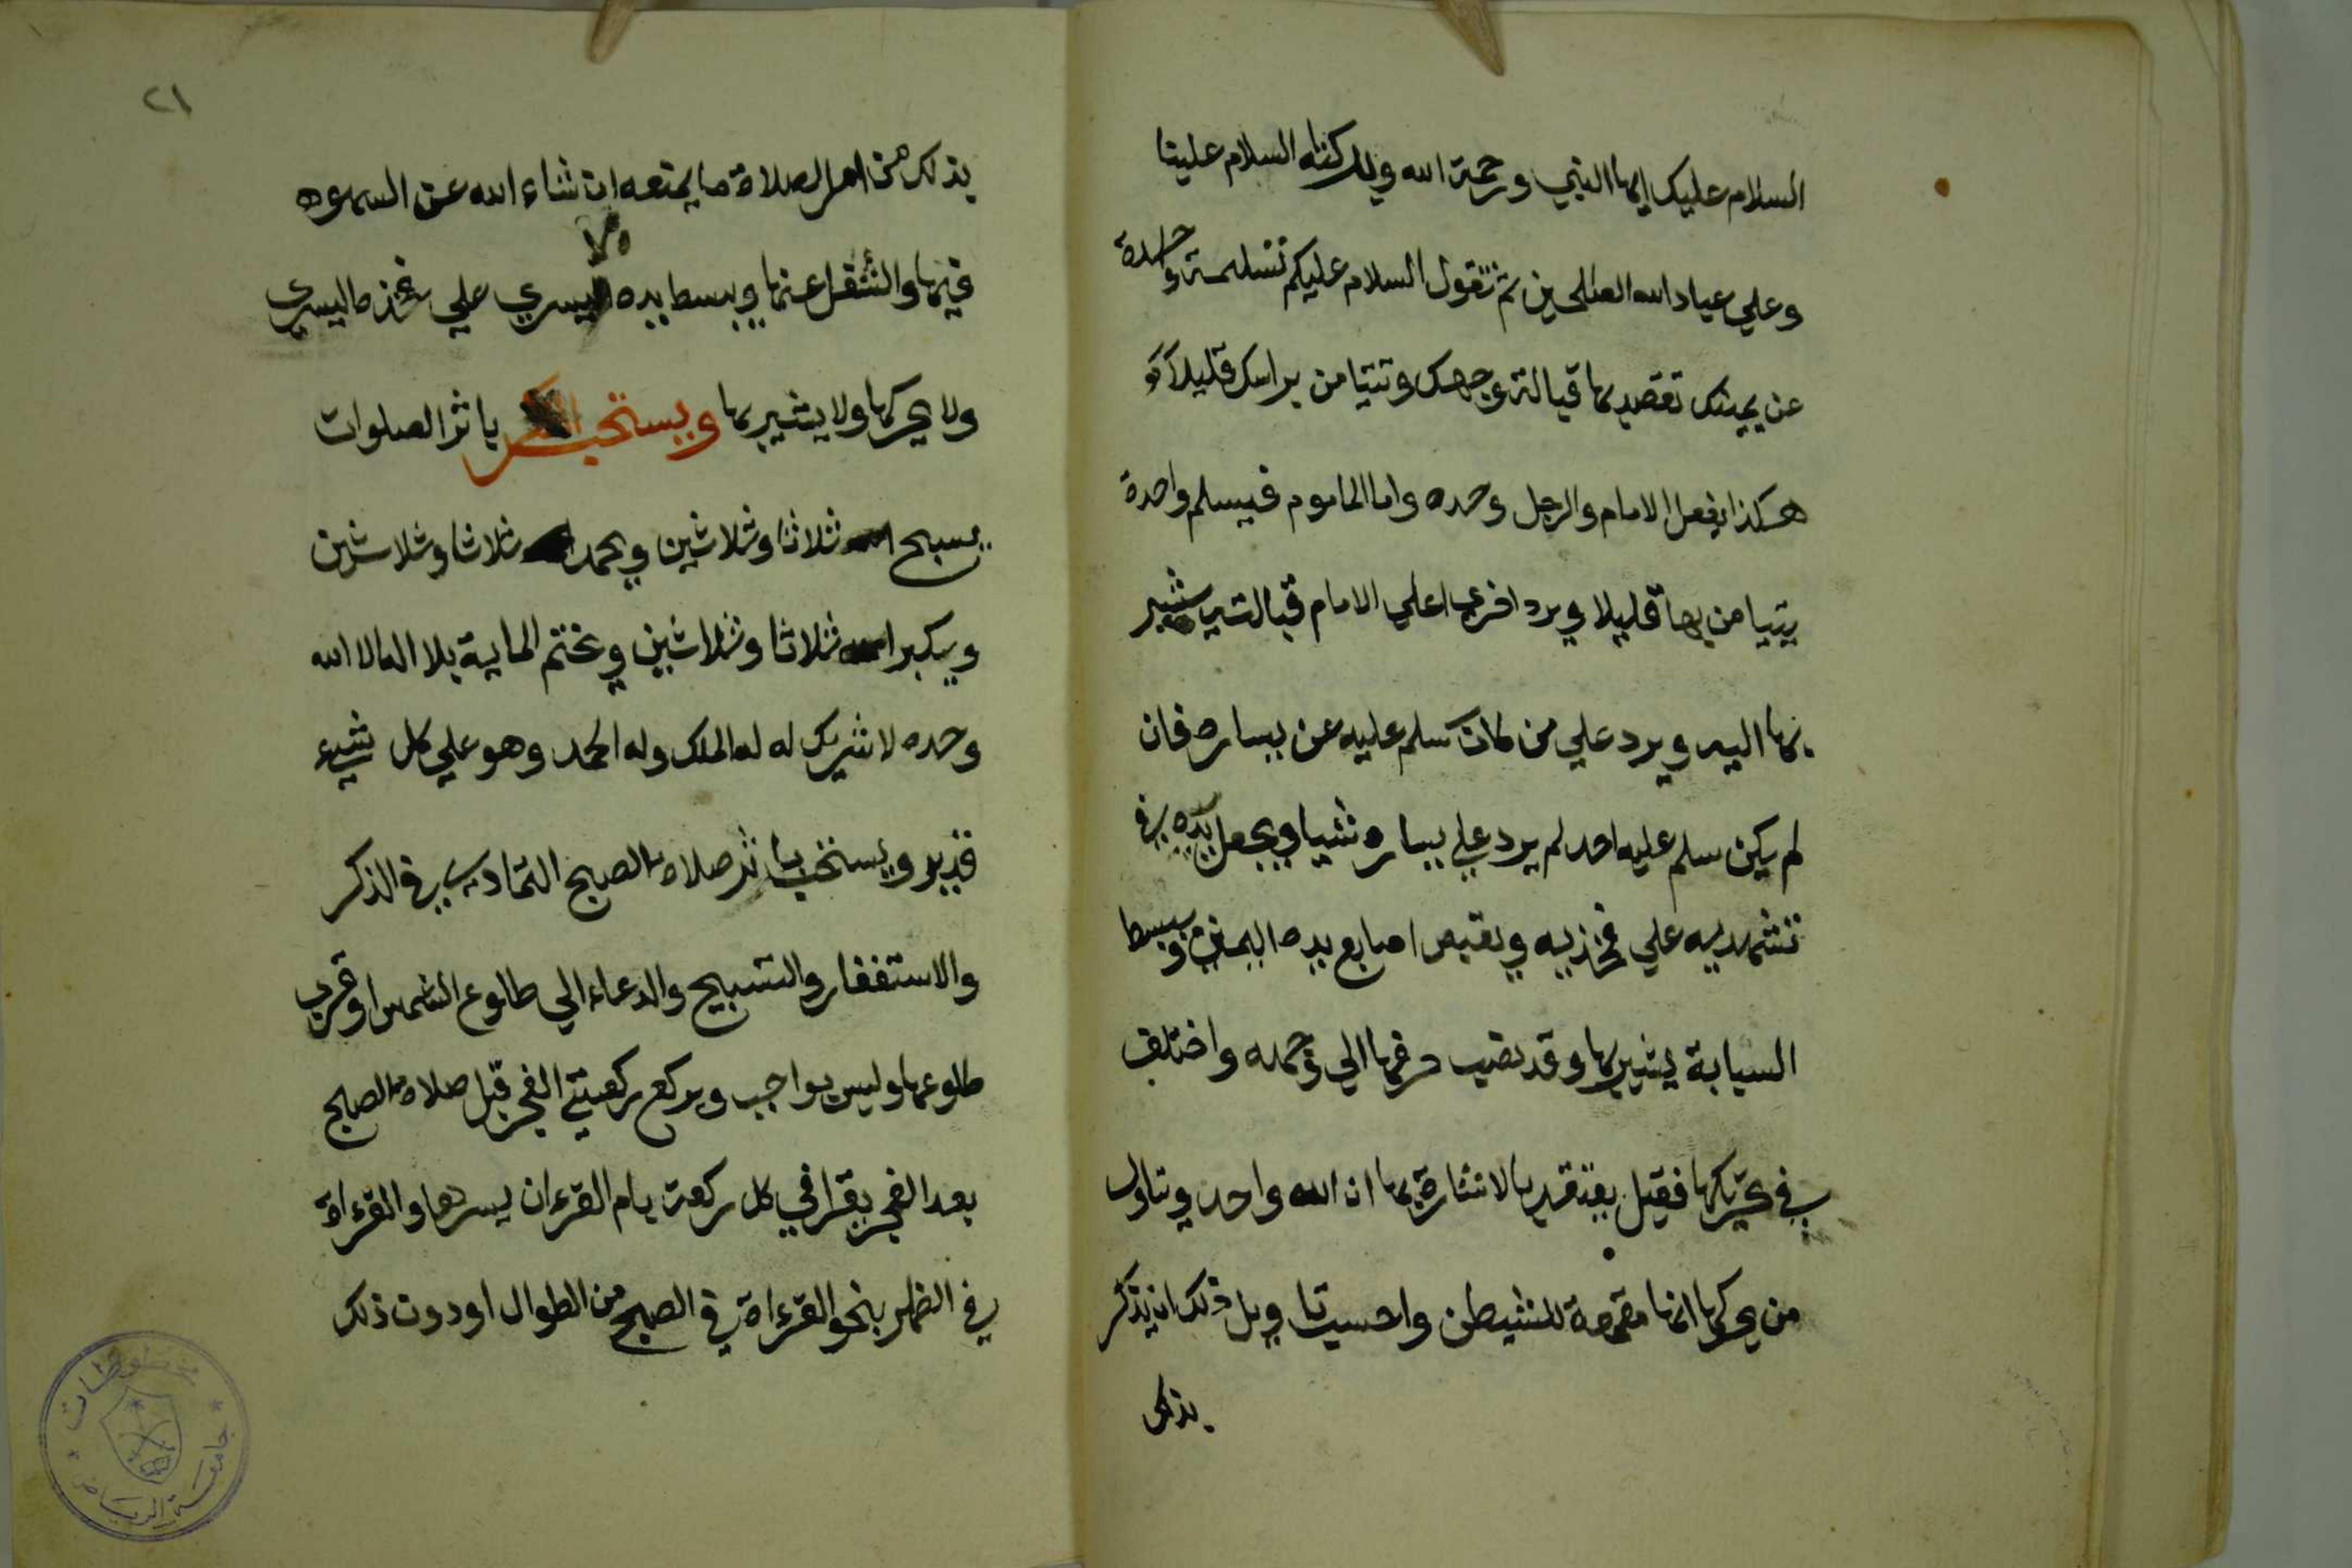 السلام عليك ايها النبي ورحمة الله وبركاته السلام علينا
وعلى عباد الله الصالحين ثم تقول السلام عليكم تسليمة واحدة
عن يمينك تقصد بها قبالة وجهك وتتيامن براسك قليلا
هكذا يفعل الامام والرجل وحده واما الماموم فيسلم واحدة
يتيامن بها قليلا ويرد اخرى على الامام قبالته يشير
بها اليه ويرد علي من كان سلم عليه عن يساره فان
لم يكن سلم عليه احد لم يرد علي يساره شيا ويجعل يديه في
تشهديه علي فخذيه ويقبض اصابع يده اليمني ويبسط
السبابة يشير بها وقد نصب حرفها الي وجهه واختلف
في تحريكها فقيل يعتقد بالاشارة بها ان الله واحد ويتاول
من يحركها انها مقمعة للشيطن واحسب تاويل ذلك ان يذكر
بذلك
٢١
بذلك من امر الصلاة ما يمنعه ان شاء الله عن السهو
فيها والشغل عنها ويبسط يده اليسري علي فخذه اليسرى
ولا يحركها ولا يشير بها ويستحب الذكر باثر الصلوات
يسبح الله ثلاثا وثلاثين ويحمد الله ثلاثا وثلاثين
ويكبر الله ثلاثا وثلاثين ويختم الماية بلا اله الا الله
وحده لا شريك له له الملك وله الحمد وهو علي كل شيء
قدير ويستحب باثر صلاة الصبح التمادي في الذكر
والاستغفار والتسبيح والدعاء الي طلوع الشمس او قرب
طلوعها وليس بواجب ويركع ركعتي الفجر قبل صلاة الصبح
بعد الفجر يقرا في كل ركعة بام القرءان يسرها والقرءاة
في الظهر بنحو القرءاة في الصبح من الطوال او دون ذلك
جامعة الرياض